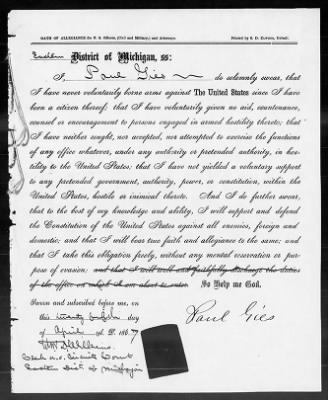 OATH OF ALLEGIANCE for U. S. Officers, (Civil and Military,) and Attorneys. Printed by S. D. Elwood, Detroit.
Eastern District of Michigan, ss:
I, Paul Gies do solemnly swear, that
I have never voluntarily borne arms against The United States since I have
been a citizen thereof; that I have voluntarily given no aid, countenance,
counsel or encouragement to persons engaged in armed hostility thereto; that
I have neither sought, nor accepted, nor attempted to exercise the functions
of any office whatever, under any authority or pretended authority, in hos-
tility to the United States; that I have not yielded a voluntary support
to any pretended government, authority, power, or constitution, within the
United States, hostile or inimical thereto. And I do further swear,
that to the best of my knowledge and ability, I will support and defend
the Constitution of the United States against all enemies, foreign and
domestic; and that I will bear true faith and allegiance to the same; and
that I take this obligation freely, without any mental reservation or pur-
pose of evasion; and that I will well and faithfully discharge the duties
of the office on which I am about to enter. So Help me God.
Sworn and subscribed before me, on
this twenty day
of April A. D. 1867
Paul Gies
Clerk U.S. Circuit Court
Eastern Dist. of Michigan